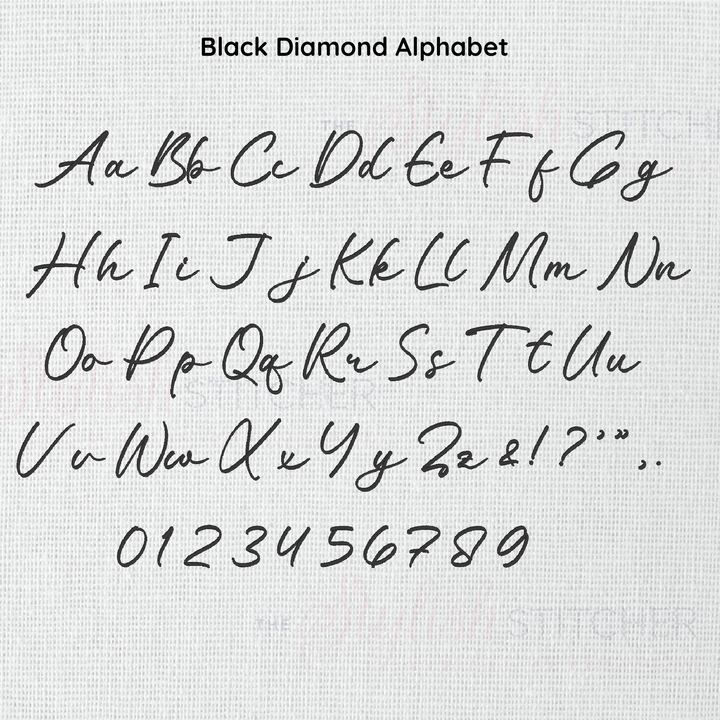 Black Diamond Alphabet
THE STITCHER
Aa Bb Cc Dd Ee Ff Gg
Hh Ii Jj Kk Ll Mm Nn
Oo Pp Qq Rr Ss Tt Uu
STITCHER
Vv Ww Xx Yy Zz &!?’”,.
0123456789
THE STITCHER